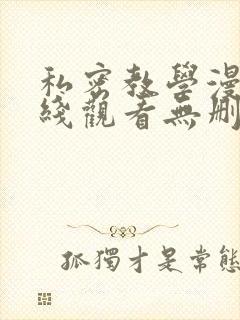 私密教學漫
綫觀看無刪
孤獨才是常態